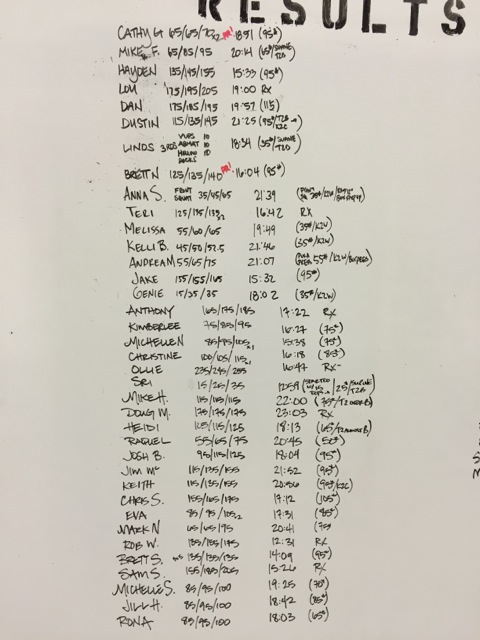 RESULTS
CATHY G 65/65/70x2 PR! 18:51 (95#)
MIKE F. 65/85/95 20:14 (65#/
HAYDEN 135/145/155 15:33 (95#)
LOU 175/195/205 19:00 RX
DAN 175/185/195 19:57 (115)
DUSTIN 115/135/145 21:25 (95#/T2B → K2C)
LINDS 3 RDS VUPS 10 ABMAT 10 HOLLOW 10 ROCKS 18:34 (35#/
BRETT N 125/135/140 PR! 16:04 (85#)
ANNA S. FRONT SQUAT 35/45/65 21:39
TERI 125/135/ 16:42 RX
MELISSA 55/60/65 19:49 (35#/K2W)
KELLI B. 45/50/52.5 21:46 (35#/K2W)
ANDREA M 55/65/75 21:07 55#/K2W/BURPEES)
JAKE 155/155/165 15:32 (95#)
GENIE 15/25/35 18:02 (35#/K2W)
ANTHONY 165/175/185 17:22 RX
KIMBERLEE 75/85/95 16:27 (75#)
MICHELLE N 85/95/105x1 15:38 (75#)
CHRISTINE 100/105/115x1 16:18 (85#)
OLLIE 235/245/255 16:47 RX-
SRI 15/25/35 (STARTED 25#/
MIKE H. 115/115/115 22:00 (75#/T2
DOUG M. 175/175/175 23:03 RX
HEIDI 105/115/125 18:13 (65#/T2
RAQUEL 55/65/75 20:45 (50#)
JOSH B. 95/115/125 18:04 (95#)
JIM Mc 115/135/155 21:52 (95#)
KEITH 115/135/155 20:56 (95#/K2C)
CHRIS S. 155/165/175 17:12 (105#)
EVA 85/95/105x2 17:31 (85#)
MARK N 65/65/95 20:41 (75#
ROB W. 135/155/175 12:31 RX
BRETT S. 135/135/135 14:09 (95#)
SAM S. 155/185/205 15:26 RX
MICHELLE S. 85/95/100 19:25 (70#)
JILL H. 85/95/100 18:42 (85#)
RONA 85/95/100 18:03 (65#)